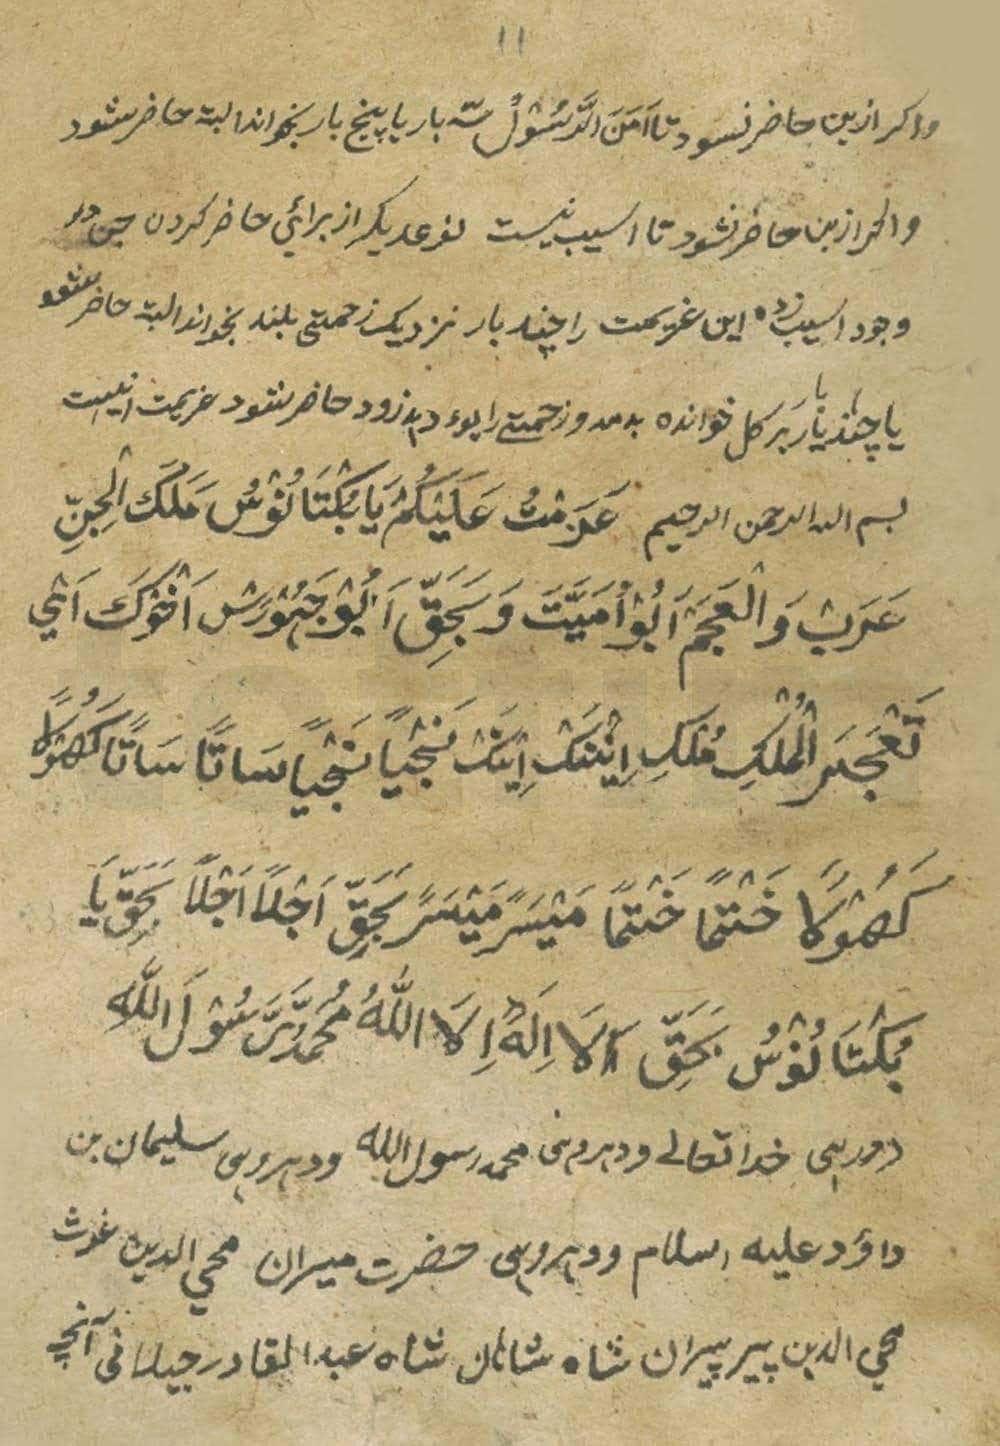 ۱۱
واکر ازین حاضر نسود تا اَمَنَ الرَّسُوْلُ سّه بار یا پنج بار بخواند البته حاضر شود
واکر ازین حاضر نشود تا اسیب نیست نوعدیکر از برائی حاضر کردن جن در
وجود اسیب زده این عزیمت را چند بار نزدیک زحمتی بلند بخواند البته حاضر شود
یا چند بار بر کل خوانده بدمد و زحمتی را بوء دهد زود حاضر شود عزیمت اینست
بسم الله الرحمن الرحیم عَزَمْتُ عَلَیْکُمْ یَا بُکْتَا نُوْسُ مَلَکَ الْجِنِّ
عَرَبْ وَالْعَجَمْ اَبُوْ اُمَیَّتَ وَ بَحَقِّ اَبُوْ جَهُوْرَسْ اَخْوَکَ اَخِیْ
الْمُلْکِ مُلْکِ اِیْنَکْ اِیْنَکْ نَجْیًا نَجْیًا سَاتًا سَاتًا کَهُوْلًا
کَهُوْلًا خَتْمًا خَتْمًا مَیْسَرً مَیْسَرً بَحَقِّ اَجْلًا اَجْلًا بَحَقِّ یَا
بُکْتَا نُوْسُ بَحَقِّ لَا اِلَهَ اِلَا اللّٰهُ مُحَمَّدٌ رَّسُوْلَ اللّٰهِ
دورهی خدا تعالے ودوهی محمد رسول الله ودوروهی سلیمان بن
داؤد علیه اسلام ودوروهی حضرت میران محی الدین غوث
محی الدین پیر پیران شاه شاهان شاه عبدالقادر جیلانی آنچه